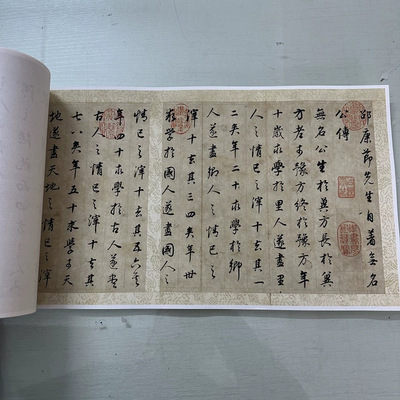 邵康節先生自著無名
公傳
無名公生於冀方長於冀
方老於豫方終於豫方年
十歲求學於里人遂盡里
人之情已之滓十去其一
二矣年二十求學於鄉
人遂盡鄉人之情已之
滓十去其三四矣年卅
求學於國人遂盡國人之
情已之滓十去其五六矣
年四十求學於古人遂盡
古人之情已之滓十去其
七八矣年五十求學於天
地遂盡天地之情已之滓